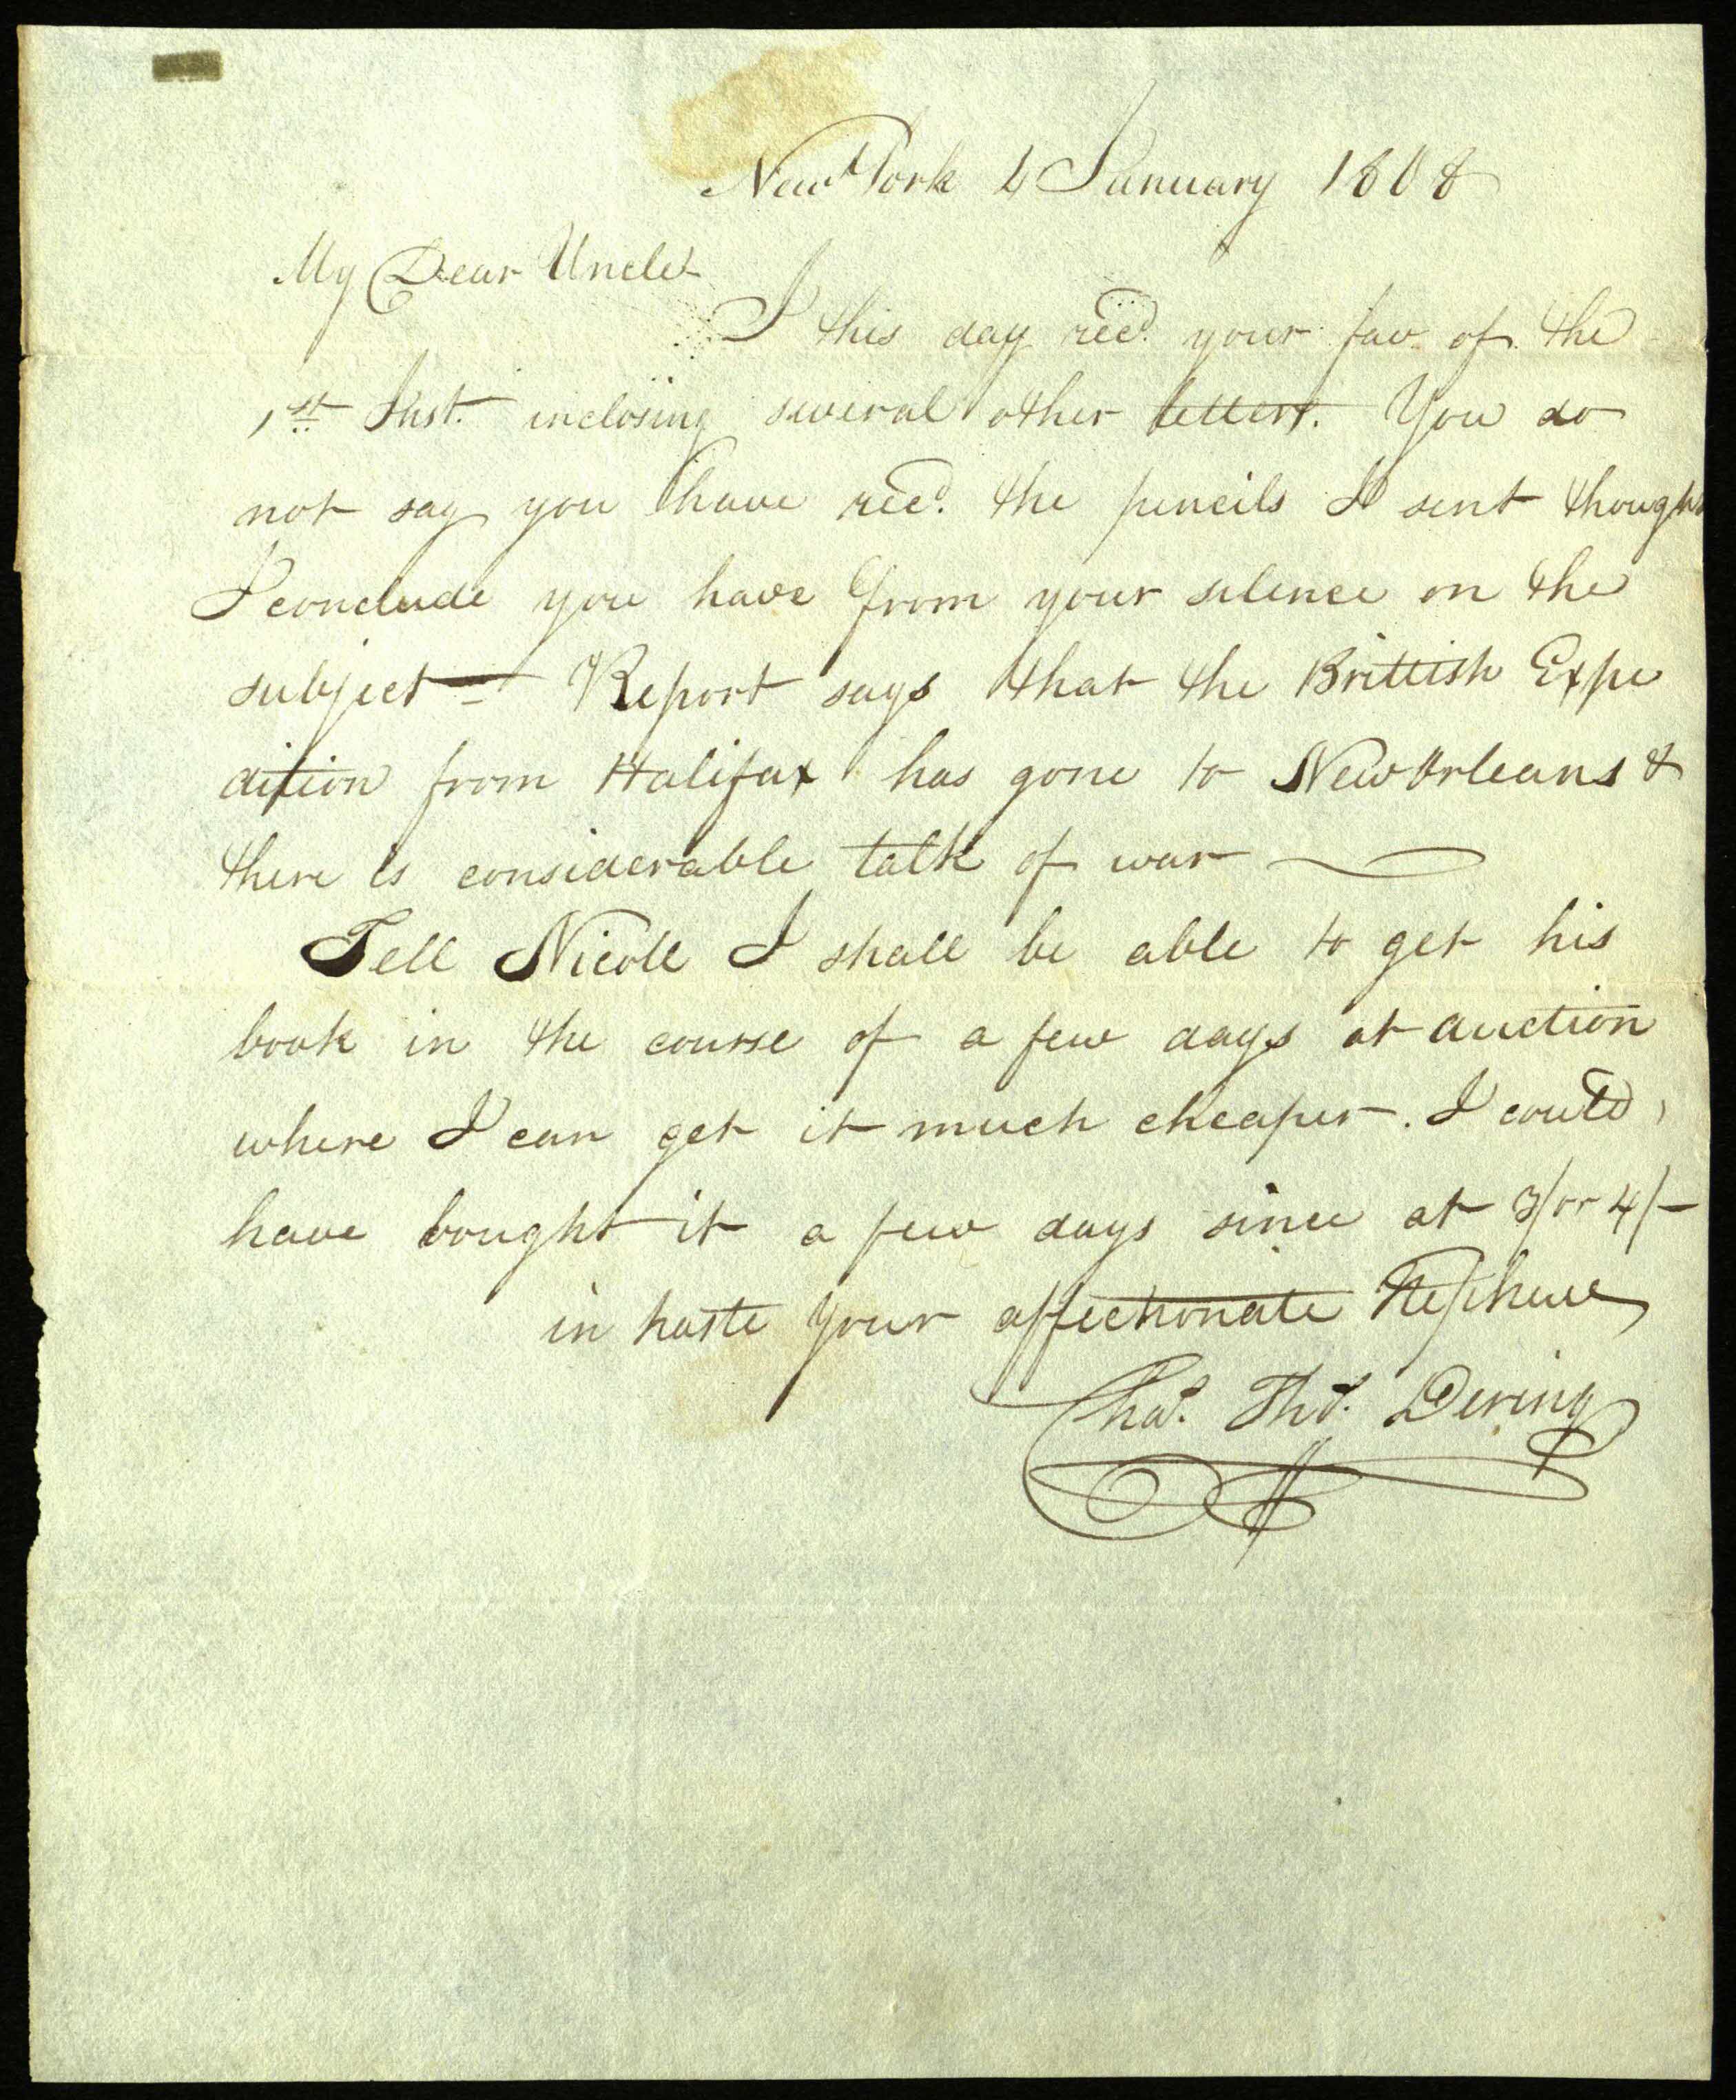 New York 4 January 1808
My Dear Uncle
I this day recd. your fav. of the
1st Inst. inclosing several other letters. You do
not say you have recd. the pencils I sent though
I conclude you have from your silence on the
subject — Report says that the Brittish Expe
dition from Halifax has gone to New Orleans &
there is considerable talk of war —
Tell Nicoll I shall be able to get his
book in the course of a few days at auction
where I can get it much cheaper. I could
have bought it a few days since at 3/ or 4/-
in haste your affectionate Nephew
Chas. Ths. Dering